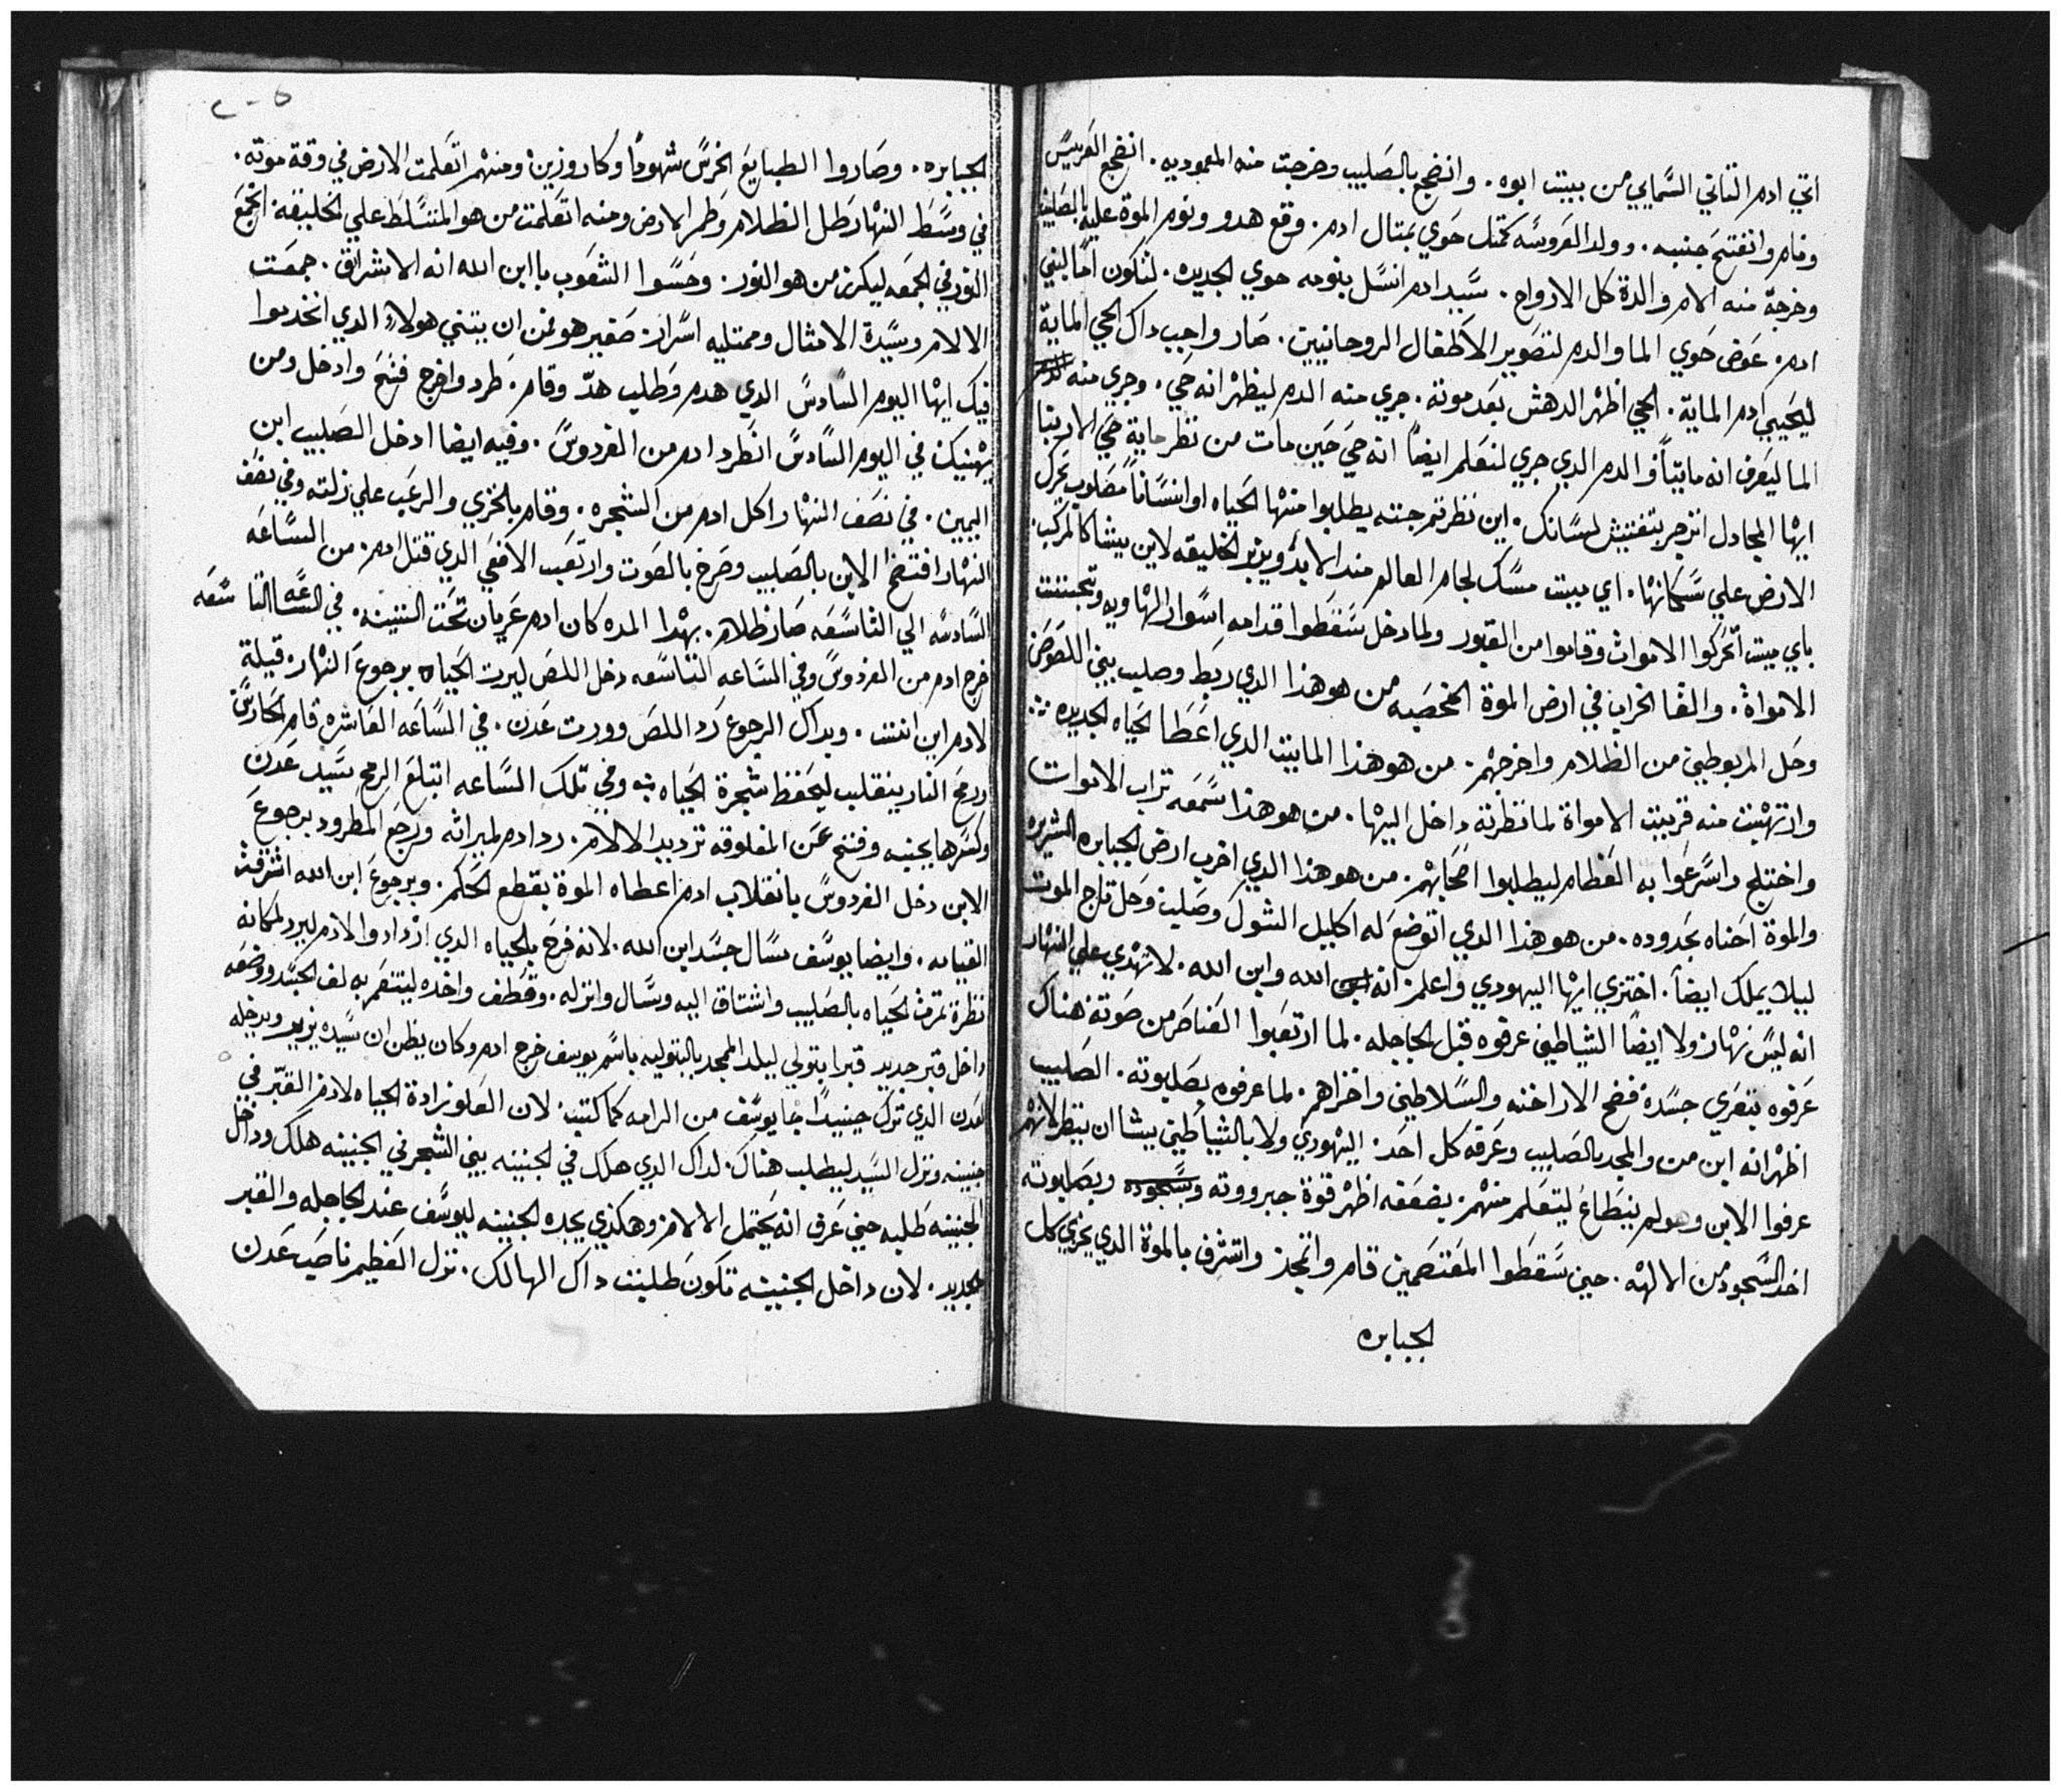 اتي ادم التاني السَّمايي من بييت ابوه. وانضجع بالصَليب وخرجت منه المعموديه. انضجع العَريسً
ونام وانفتحَ جنبه. وولد العَروسَه كمتل حَوي بمتال ادم. وقع هدو ونوم الموة عليه بالصَليب
وخرجة منه الام والدة كل الارواح. سَّيد ادم انسَّل بنومه حوي الجديده. لتكون امًا لبني
ادم. عَوض حَوي الما والدم لتصَوير الاَطفال الروحانيين. صَار واجب داك الحي الماية
ليحَيي ادم الماية. الحي اظهْر الدهش بعَد موتة. جري منه الدم ليظهْر انه حي. وجري منه
الما ليَعرف انه مايتاً والدم الدي جري لنتعَلم ايضاً انه حَي حَين مات من نظر ماية حَي الا ربنا
ايهْا المجادل انزجر بتفتيش لسَّانك. اين نظرتم جتته يطلبوا منهْا الحَياه او انسَّاناً مَصَلوب يحَرك
الارض علي سَّكانهْا. اي مييت مسَّك لجام العالم مند الابد ويزيز الخليقه لاين ييشا كالمركب.
باي مييت اتحَركوا الاموات وقاموا من القبور ولما دخل سَّقطَوا قدامه اسًوار الهْاويه وتجننت
الامواة. والقا الخراب في ارض الموة الخصَبه من هو هذا الدي ربَط وصليب بين اللصَوصَ
وحَل المربوطين من الظلام واخرجهْم. من هو هذا المايت الدي اعَطا الحَياه الجديده ∴
وارتهْبت منه قريت الامواة لما نظرته داخل اليهْا. من هو هذا سَّمعَه تراب الاموات
واختلج واسَّرعَوا به العَظام ليطلبوا اصَحَابهْم. من هو هذا الدي اخرب ارض الجبابره الشريره
والموة احَناه بحَدوده. من هو هذا الدي اتوضعَ له اكليل الشوك وصَليب وحَل تاج الموت
ليلا يملك ايضاً. اختزي ايهْا اليهودي واعلم انه الله وابن الله. لا تهْدي علي النهْار
انه ليسًّ نهْار ولا ايضًا الشياطين عرفوه قبل الجاجله. لما ارتعَبوا العَناصَر من صَوته هناك
عَرفوه بتعَري جسَّدة فضح الاراخنه والسَّلاطين واخزاهم. لما عرفوه بصَلبوته. الصَليب
اظهْر انه ابن من والمجد بالصَليب وعَرفه كل احَد. اليهْوديَ ولا بالشياطين ييشا ان ينظر لانهْم
عرفوا الابن وهو لم ينبَطَاعُ ليتعَلم منهْم. بضعَفه اظهْر قوة جبرووته وبسَّجوده وبصَلبوته
اخد السَّجود من الالهْه. حين سَّقطَوا المَغتصَمين قام واتمجَد واتشرف بالموة الدي يخزي كل
الجبابره
الجبابره. وصَاروا الطبايعَ الخرسًّ شهودًا وكاروزين ومنهْم اتعَلمت الارض في وقة موته.
في وسَّطَ النهْار طَل الظلام وطَمر الارض ومنه اتعَلمت من هو المتسَّلط علي الخليقه. اتجمعَ
النور في الجمعَه ليكرز من هو النور. وحَسَّوا الشعَوب يا ابن الله انه الاشراق. جمعَت
الالام وسَّيدة الامتال وممتليه اسَّرار. صَغير هو لمن ان يتني هولاء الدي اتخدموا
فيك ايهْا اليوم السَّادسً الدي هدم وطَلب هدّ وقام. طَرد واخرج فتحَ وادخل ومن
يهْنيك في اليوم السَّادسً انطَرد ادم من الفردوسً. وفيه ايضا ادخل الصَليب ابن
اليمين. في نصَف النهْار اكل ادم من الشجره. وقام بالخزي والرعَب علي زلته وفي نصَف
النهْار افتضحَ الابن بالصَليب وصَرخ بالصَوت وارتعَب الافعَي الدي قتل ادم. من السَّاعَه
السًّادسه الي التاسَّعَه صَار ظلام. بهْدا المده كان ادم عَريان تحَت التينه. في السَّاعَه التاسَّعَه
خرج ادم من الفردوسً وفي السَّاعه التاسًعه دخل اللصَ ليرت الحَياه برجوعَ النهْار. قيلة
لادم اين انتت. وبداك الرجوعَ رَد اللصَ وورت عَدن. في السَّاعَه العَاشره قام الحَارسً
ورمحَ النار ينقلب ليحَفظ شجرة الحَياه به وفي تلك السَّاعه ابتلعَ الرمح سَّيد عَدن
وكسَّرها بجنبه وفتح عَدن المغلوقه تزدييد الالام. رد ادم لميراثه ورجعَ المطرود برجوعَ
الابن دخل الفردوسً بانقلاب ادم اعطاه الموة بقطع الحَكم. وبرجوعَ ابن الله اشرفت
القيامه. وايضا يوسَّف سَّال جسَّد ابن الله. لانه فرحَ بالحياه الدي ازداد والادم ليرد لمكانه
نظرة تمرت الحَياه بالصَليب واشتاق اليه وسَّال وانزله. وقطَف واخده ليتنعَم به لف الجسَّد ووضعَه
داخل قبر جديد قبرا بتولي ليلد الممجد بالبتوليه باسَّم يوسف خرج ادم وكان يظن ان سَّيده يزيد ويدخله
لعَدن الدي ترك حينيدًا جا يوسَّف من الرامه كما كتبت. لان العَلو زادة الحياه لادم القبر في
جنينه ونزل السَّيد ليطلب هناك. لداك الدي هلك في الجنينه بين الشجر في الجنينه هلك وداخل
الجنينه طَلبه حين عَرف انه يحَتمل الالام وهكذي يجده الجنينه ليوسَّف عند الجاجله والقبر
الجديد. لان داخل الجنينه تكونَ طلبت داك الهالك. نزل العَظيم ناصَب عَدن